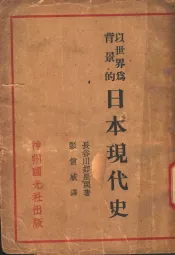 以世界為
背景的
日本現代史
長谷川如是閑著
彭信威譯
神州國光社出版